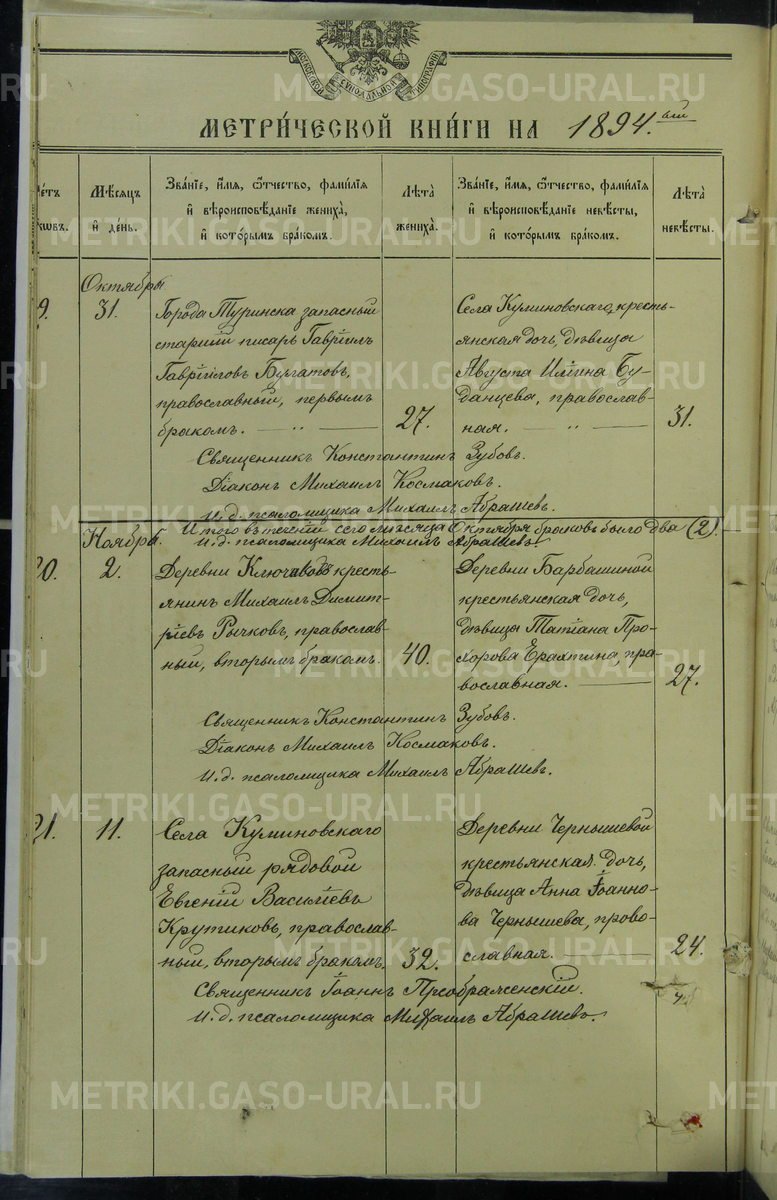 МОСКОВСКОЙ СѴНОДАЛЬНОЙ ТИПОГРАФІИ
МЕТРИ́ЧЕСКОЙ КНИ́ГИ НА 1894.ый
Мѣ́сяцъ
и҆ де́нь.
Зва́нїе, и҆́мѧ, ѻ҆́тчество, фамилїѧ
и҆ вѣроисповѣ́данїе жениха̀,
и҆ кото́рымъ бра́комъ.
Лѣ̑та
жениха̀.
Зва́нїе, и҆́мѧ, ѻ҆́тчество, фамилїѧ
и҆ вѣроисповѣ́данїе невѣ́сты,
и҆ кото́рымъ бра́комъ.
Лѣ̑та
невѣ́сты.
Октябрь
31.
Города Туринска запасный
старшій писарь Гавріилъ
Гавріиловъ Булатовъ,
православный, первымъ
бракомъ. — „ —
27.
Села Куминовскаго, кресть-
янская дочь, дѣвица
Августа Иліина Бу-
данцева, православ-
ная. — „ —
31.
Священникъ Константинъ Зубовъ.
Діаконъ Михаилъ Космаковъ.
И. д. псаломщика Михаилъ Абрашевъ.
Итого въ теченіи сего мѣсяца Октября браковъ было два (2).
И. д. псаломщика Михаилъ Абрашевъ.
Ноябрь.
2.
Деревни кресть-
янинъ Михаилъ Димит-
ріевъ Рычковъ, православ-
ный, вторымъ бракомъ.
40.
Деревни Барбашиной
крестьянская дочь,
дѣвица Татіана Про-
хорова Ерахтина, пра-
вославная. —
27.
Священникъ Константинъ Зубовъ.
Діаконъ Михаилъ Космаковъ.
И. д. псаломщика Михаилъ Абрашевъ.
11.
Села Куминовскаго
запасный рядовой
Евгеній Васильевъ
Крутиковъ, православ-
ный, вторымъ бракомъ.
32.
Деревни Чернышевой
крестьянская дочь,
дѣвица Анна Іоанно-
ва Чернышева, право-
славная. —
24.
Священникъ Іоаннъ Преображенскій.
И. д. псаломщика Михаилъ Абрашевъ.
METRIKI.GASO-URAL.RU